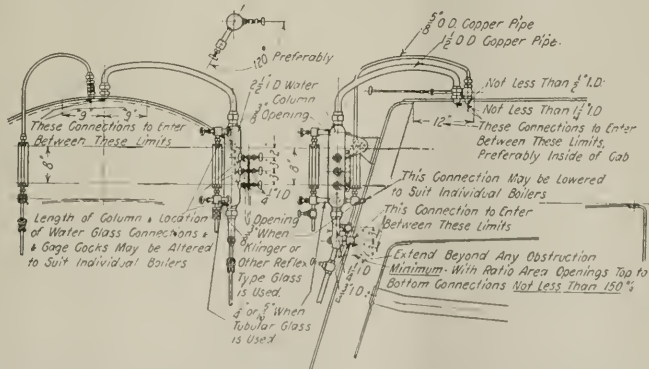 5/8" O.D. Copper Pipe
1 1/2" O.D. Copper Pipe.
120° Preferably
2 1/2" I.D Water
Column
3/8" Opening
Not Less Than I.D.
Not Less Than I.D
12"
These Connections to Enter
Between These Limits,
Preferably Inside of Cab
9" 9"
These Connections to Enter
Between These Limits
8"
8"
This Connection May be Lowered
to Suit Individual Boilers
This Connection to Enter
Between These Limits
Length of Column & Location
of Water Glass Connections &
& Gage Cocks May be Altered
to Suit Individual Boilers
I.D
Opening
When
Klinger or
Other Reflex
Type Glass
is Used.
1/4" or When
Tubular Glass
is Used
I.D
I.D.
Extend Beyond Any Obstruction
Minimum - With Ratio Area Openings Top to
Bottom Connections Not Less Than 150%